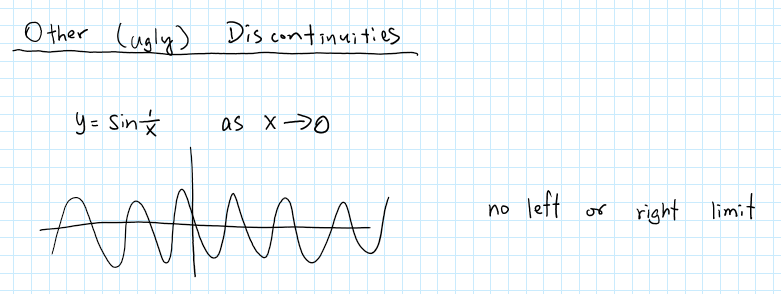 Other (ugly) Discontinuities
y = sin 1/x as x → 0
no left or right limit